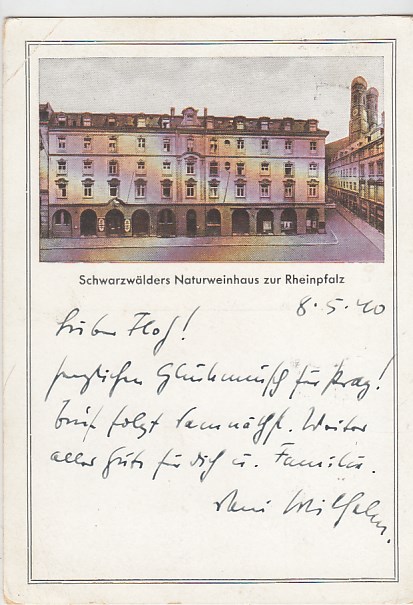 Schwarzwälders Naturweinhaus zur Rheinpfalz
8.5.40
Lieber Flof!
herzlichen Glückwunsch für Prag!
Brief folgt demnächst. Weiter
alles Gute für dich u. Familie.
dein Wilhelm.